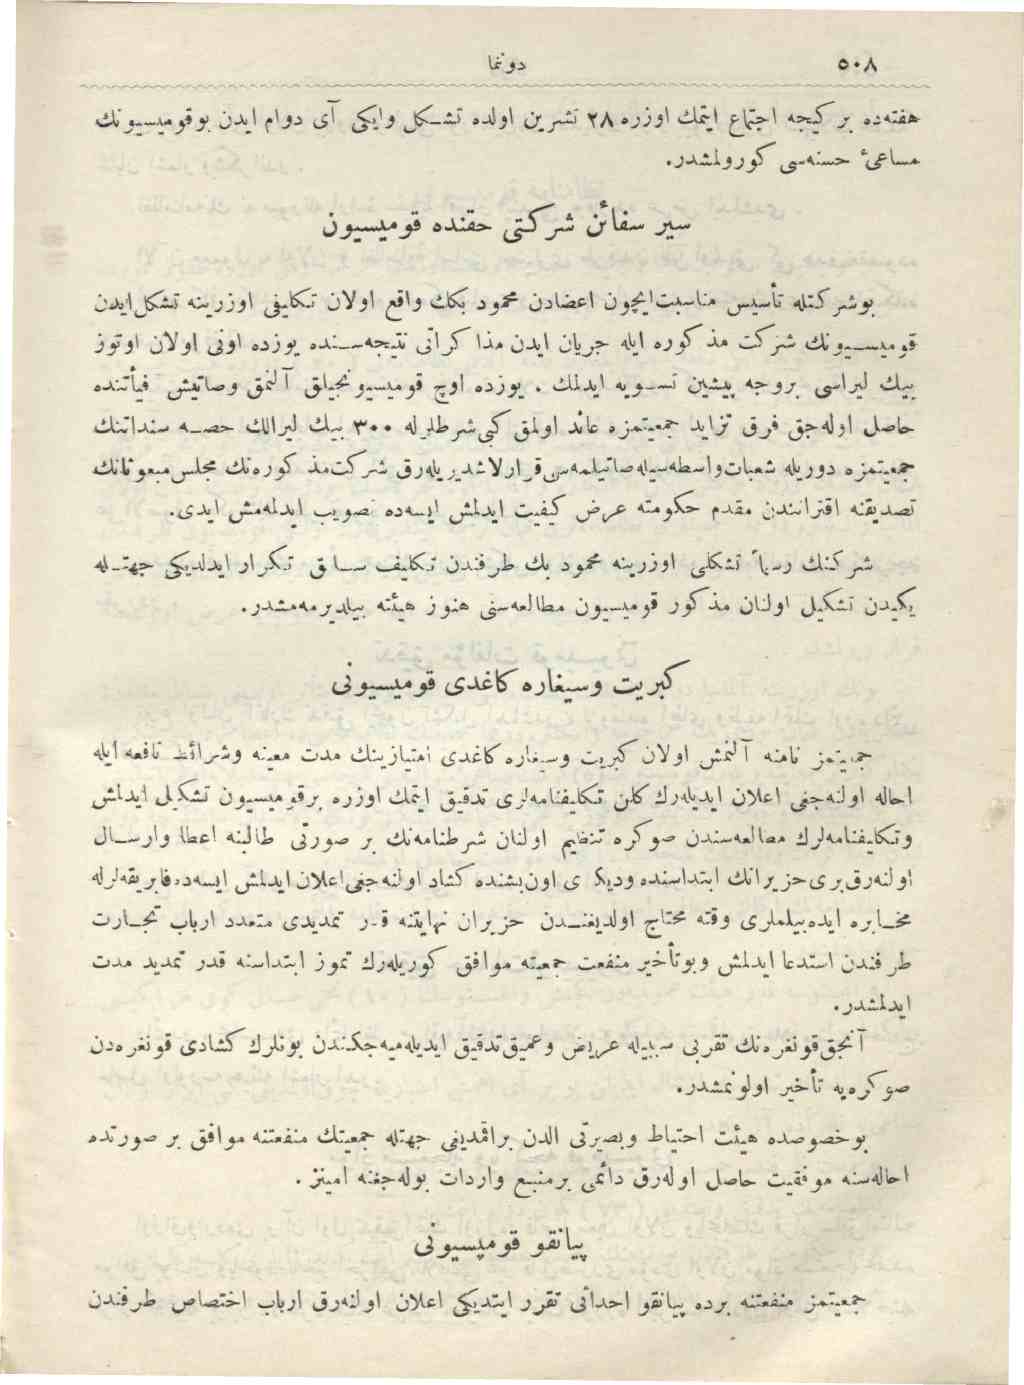 ٥٠٨
دونما
هفته‌ده بر كيجه اجتماع ايتمك اوزره ٢٨ تشرين اولده تشكل وايكى آى دوام ايدن بوقوميسيونك
مساعئ حسنه‌سى كورولمشدر.
سير سفائن شركتى حقنده قوميسيون
بوشركتله تأسيس مناسبت ايچون اعضادن محمود بكك واقع اولان تكليفى اوزرينه تشكل ايدن
قوميسيونك شركت مذكوره ايله جريان ايدن مذاكراتى نتيجه‌سنده يوزده اونى اولان اوتوز
بيك ليراسى بروجه پيشين تسويه ايدلمك . يوزده اوچ قوميسيونجيلق آلنمق وصاتيش فيأتنده
حاصل اوله‌جق فرق تزايد جمعيتمزه عائد اولمق كبى شرطلرله ٣٠٠ بيك ليرالك حصه سنداتنك
جمعيتمزه دوريله شعبات واسطه‌سيله صاتيلمه‌سى قرارلاشديريله‌رق شركت مذكوره‌نك مجلس مبعوثانك
تصديقنه اقترانندن مقدم حكومته عرض كيفيت ايدلمش ايسه‌ده تصويب ايدلمه‌مش ايدى.
شركتك رسماً تشكلى اوزرينه محمود بك طرفندن تكليف سابق تكرار ايدلديكى جهتله
يكيدن تشكيل اولنان مذكور قوميسيون مطالعه‌سنى هنوز هيئته بيلديرمه‌مشدر.
كبريت وسيغاره كاغدى قوميسيونى
جمعيتمز نامنه آلنمش اولان كبريت وسيغاره كاغدى امتيازينك مدت معينه وشرائط نافعه ايله
احاله اولنه‌جغى اعلان ايديله‌رك كلن تكليفنامه‌لرى تدقيق ايتمك اوزره برقوميسيون تشكيل ايدلمش
وتكليفنامه‌لرك مطالعه‌سندن صوكره تنظيم اولنان شرطنامه‌نك بر صورتى طالبنه اعطا وارسال
اولنه‌رق برى حزيرانك ابتداسنده وديكرى اون بشنده كشاد اولنه‌جغى اعلان ايدلمش ايسه‌ده فابريقه‌لرله
مخابره ايده‌بيلملرى وقته محتاج اولديغندن حزيران نهايتنه قدر تمديدى متعدد ارباب تجارت
طرفندن استدعا ايدلمش وبوتأخير منفعت جمعيته موافق كوريله‌رك تموز ابتداسنه قدر تمديد مدت
ايدلمشدر.
آنجق قونغره‌نك تقربى سببيله عريض وعميق تدقيق ايديله‌ميه‌جكندن بونلرك كشادى قونغره‌دن
صوكره‌يه تأخير اولونمشدر.
بوخصوصده هيئت احتياط وبصيرتى الدن براقمديغى جهتله جمعيتك منفعتنه موافق بر صورتده
احاله‌سنه موفقيت حاصل اوله‌رق دائمى برمنبع واردات بوله‌جغنه امينز .
پيانقو قوميسيونى
جمعيتمز منفعتنه برده پيانقو احداثى تقرر ايتديكى اعلان اولنه‌رق ارباب اختصاص طرفندن